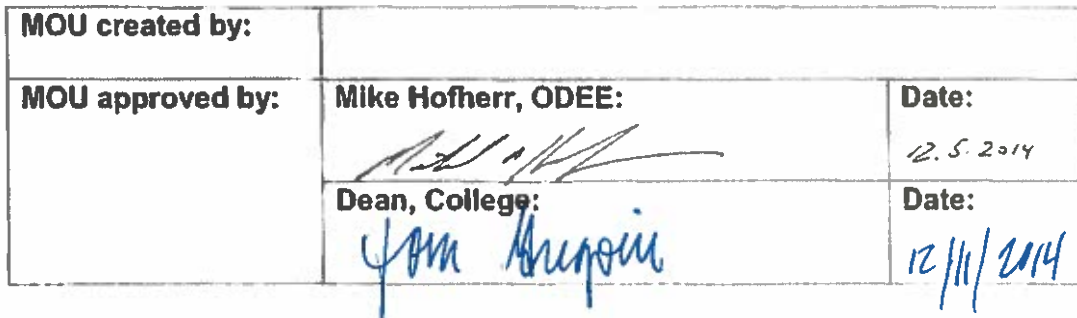 MOU created by:
MOU approved by: Mike Hofherr, ODEE: Date:
12.5.2014
Dean, College: Date:
Tom
12/11/2014